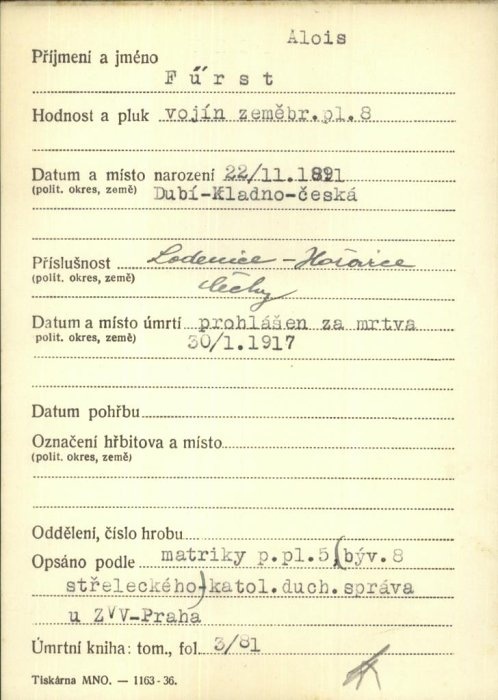 Alois
Příjmení a jméno
Fűrst
Hodnost a pluk vojín zeměbr.pl.8
Datum a místo narození 22/11.1891
(polit. okres, země) Dubí-Kladno-česká
Příslušnost Lodenice - Hořovice
(polit. okres, země) Čechy
Datum a místo úmrtí prohlášen za mrtva
polit. okres, země) 30/1.1917
Datum pohřbu
Označení hřbitova a místo
(polit. okres, země)
Oddělení, číslo hrobu
Opsáno podle matriky p.pl.5,(býv.8
střeleckého)-katol.duch.správa
u ZVV-Praha
Úmrtní kniha: tom., fol. 3/81
Tiskárna MNO. — 1163-36.